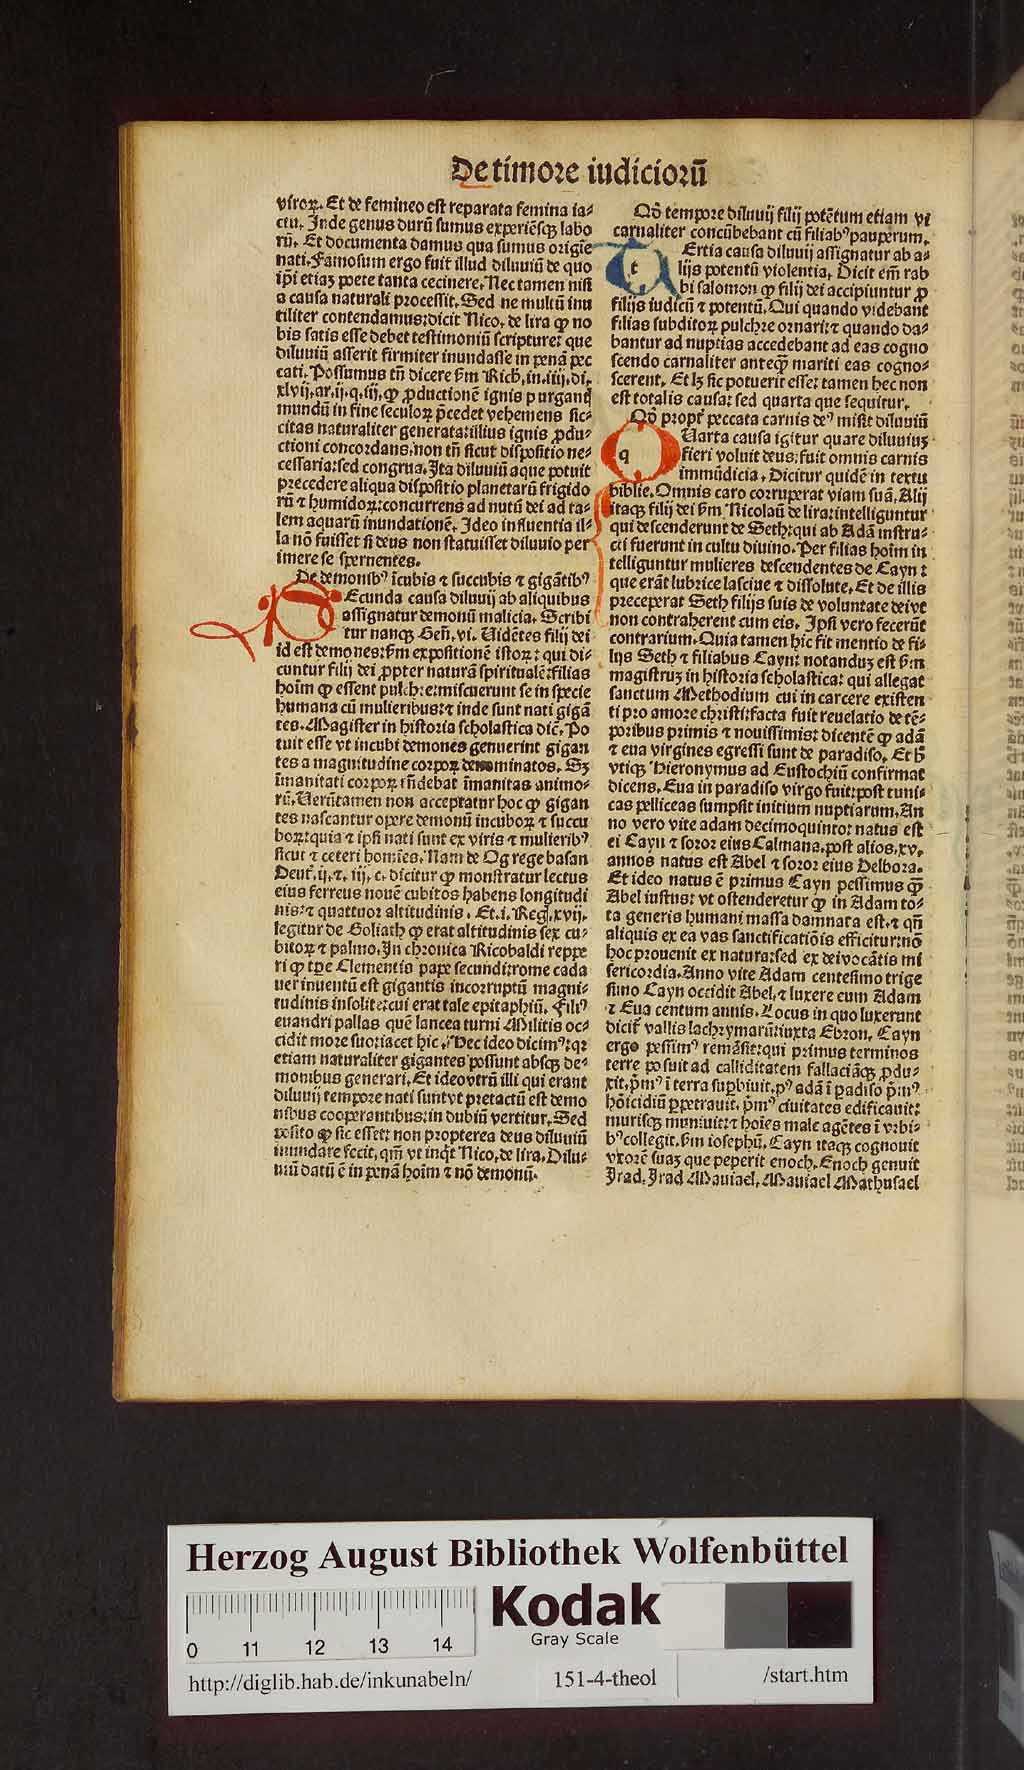 De timore iudicioꝝ̄
viroꝝ. Et de femineo est reparata femina ia⸗
ctu. Inde genus durū sumus experiēsqꝫ labo
rū. Et documenta damus qua sumus origie
nati. Famosum ergo fuit illud diluuiū de quo
ip̄i etiaꝫ poete tanta cecinere. Nec tamen nisi
a causa naturali processit. Sed ne multū inu
tiliter contendamus: dicit Nico. de lira ꝙ no
bis satis esse debet testimoniū scripture: que
diluuiū asserit firmiter inundasse in penā pec
cati. Possumus tn̄ dicere ẜm Rich. in. iiij. di.
xlvij. ar. ij. q. iij. ꝙ ꝓductionē ignis purgantꝭ
mundū in fine seculoꝝ p̄cedet vehemens sic⸗
citas naturaliter generata: illius ignis ꝓdu⸗
ctioni concordans. non tn̄ sicut dispositio ne⸗
cessaria: sed congrua. Ita diluuiū aque potuit
precedere aliqua dispositio planetarū frigido
rū ⁊ humidoꝝ: concurrens ad nutū dei ad ta⸗
lem aquarū inundationē. Ideo influentia il⸗
la nō fuisset si deus non statuisset diluuio per
imere se spernentes.
De demonibꝰ īcubis ⁊ succubis ⁊ gigātibꝰ
Ecunda causa diluuij ab aliquibus
assignatur demonū malicia. Scribi
tur nanqꝫ Gen̄. vi. Uidētes filij dei
id est demones: ẜm expositionē istoꝝ: qui di⸗
cuntur filij dei ꝓpter naturā spiritualē: filias
hoīm ꝙ essent pulchre: miscuerunt se in specie
humana cū mulieribus: ⁊ inde sunt nati gigā
tes. Magister in historia scholastica dic̄. Po
tuit esse vt incubi demones genuerint gigan
tes a magnitudine corpoꝝ denominatos. Sꝫ
īmanitati corpoꝝ rn̄debat īmanitas animo⸗
rū. Uerūtamen non acceptatur hoc ꝙ gigan
tes nascantur opere demonū incuboꝝ ⁊ succu
boꝝ: quia ⁊ ipsi nati sunt ex viris ⁊ mulieribꝰ
sicut ⁊ ceteri homīes. Nam de Og rege basan
Deut̄. ij. ⁊. iij. c. dicitur ꝙ monstratur lectus
eius ferreus nouē cubitos habens longitudi
nis: ⁊ quattuor altitudinis. Et. i. Reg. xvij.
legitur de Goliath ꝙ erat altitudinis sex cu⸗
bitoꝝ ⁊ palmo. In chronica Ricobaldi reppe
ri ꝙ tꝑe Clementis pape secundi: rome cada
uer inuentū est gigantis incorruptū magni⸗
tudinis insolite: cui erat tale epitaphiū. Filiꝰ
euandri pallas quē lancea turni Militis oc⸗
cidit more suo: iacet hic. Hec ideo dicimꝰ: qꝛ
etiam naturaliter gigantes possunt absqꝫ de⸗
monibus generari. Et ideo vtrū illi qui erant
diluuij tempore nati sunt vt pretactū est demo
nibus cooperantibus: in dubiū vertitur. Sed
posito ꝙ sic esset: non propterea deus diluuiū
inundare fecit, qm̄ vt inqt̄ Nico. de lira. Dilu⸗
uiū datū ē in penā hoīm ⁊ nō demonū.
Qd̄ tempore diluuij filij potētum etiam vi
carnaliter concūbebant cū filiabꝰ pauperum.
t
Ertia causa diluuij assignatur ab a⸗
lijs potentū violentia. Dicit em̄ rab
bi salomon ꝙ filij dei accipiuntur ꝓ
filijs iudicū ⁊ potentū. Qui quando videbant
filias subditoꝝ pulchre ornari: ⁊ quando da⸗
bantur ad nuptias accedebant ad eas cogno
scendo carnaliter anteqꝫ mariti eas cogno⸗
scerent. Et lꝫ sic potuerit esse: tamen hec non
est totalis causa: sed quarta que sequitur.
Qd̄ propt̄ peccata carnis deꝰ misit diluuiū
q
Uarta causa igitur quare diluuiuꝫ
fieri voluit deus: fuit omnis carnis
immūdicia. Dicitur quidē in textu
biblie. Omnis caro corruperat viam suā. Alij
itaqꝫ filij dei ẜm Nicolaū de lira: intelliguntur
qui descenderunt de Seth: qui ab Adā instru⸗
cti fuerunt in cultu diuino. Per filias hoīm in
telliguntur mulieres descendentes de Cayn:
que erāt lubrice lasciue ⁊ dissolute. Et de illis
preceperat Seth filijs suis de voluntate dei vt
non contraherent cum eis. Ipsi vero fecerūt
contrarium. Quia tamen hic fit mentio de fi⸗
lijs Seth ⁊ filiabus Cayn: notanduꝫ est ẜm
magistruꝫ in historia scholastica: qui allegat
sanctum Methodium cui in carcere existen
ti pro amore christi: facta fuit reuelatio de tē⸗
poribus primis ⁊ nouissimis: dicentē ꝙ adā
⁊ eua virgines egressi sunt de paradiso. Et h̄
vtiqꝫ Hieronymus ad Eustochiū confirmat
dicens. Eua in paradiso virgo fuit: post tuni⸗
cas pelliceas sumpsit initium nuptiarum. An
no vero vite adam decimoquinto: natus est
ei Cayn ⁊ soror eius Calmana. post alios. xv.
annos natus est Abel ⁊ soror eius Delbora.
Et ideo natus ē primus Cayn pessimus qꝫ̄
Abel iustus: vt ostenderetur ꝙ in Adam to⸗
ta generis humani massa damnata est. ⁊ qn̄
aliquis ex ea vas sanctificatiōis efficitur: nō
hoc prouenit ex natura: sed ex dei vocātis mi
sericordia. Anno vite Adam centesimo trige
simo Cayn occidit Abel. ⁊ luxere eum Adam
⁊ Eua centum annis. Locus in quo luxerunt
dicit̄ vallis lachrymarū: iuxta Ebron. Cayn
ergo pessimꝰ remāsit: qui primus terminos
terre posuit ad calliditatem fallaciāqꝫ ꝓdu⸗
xit. p̄mꝰ ī terra suꝑbiuit. pꝰ adā ī ꝑadiso p̄mꝰ
hōicidiū ꝑpetrauit. p̄mꝰ ciuitates edificauit:
murisqꝫ muniuit: ⁊ hoīes male agētes ī vrbi⸗
bꝰ collegit. ẜm iosephū. Cayn itaqꝫ cognouit
vxorē suaꝫ que peperit enoch. Enoch genuit
Irad. Irad Mauiael. Mauiael Mathusael
Herzog August Bibliothek Wolfenbüttel
0 11 12 13 14
Kodak
Gray Scale
http://diglib.hab.de/inkunabeln/ 151-4-theol /start.htm